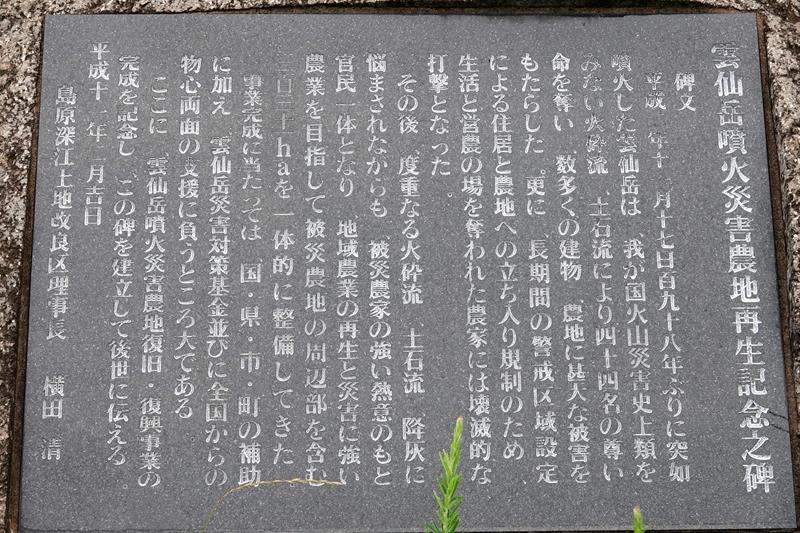 雲仙岳噴火災害農地再生記念之碑
碑文
平成 年十 月十七日百九十八年ぶりに突如
噴火した雲仙岳は、我が国火山災害史上類を
みない火砕流、土石流により四十四名の尊い
命を奪い 数多くの建物、農地に甚大な被害を
もたらした。更に、長期間の警戒区域設定
による住居と農地への立ち入り規制のため、
生活と営農の場を奪われた農家には壊滅的な
打撃となった。
その後、度重なる火砕流、土石流 降灰に
悩まされながらも、被災農家の強い熱意のもと
官民一体となり、地域農業の再生と災害に強い
農業を目指して被災農地の周辺部を含む
百三十haを一体的に整備してきた
事業完成に当たっては、国・県・市・町の補助
に加え 雲仙岳災害対策基金並びに全国からの
物心両面の支援に負うところ大である
ここに 雲仙岳噴火災害農地復旧・復興事業の
完成を記念し、この碑を建立して後世に伝える。
平成十 年 月吉日
島原深江土地改良区理事長 横田 清